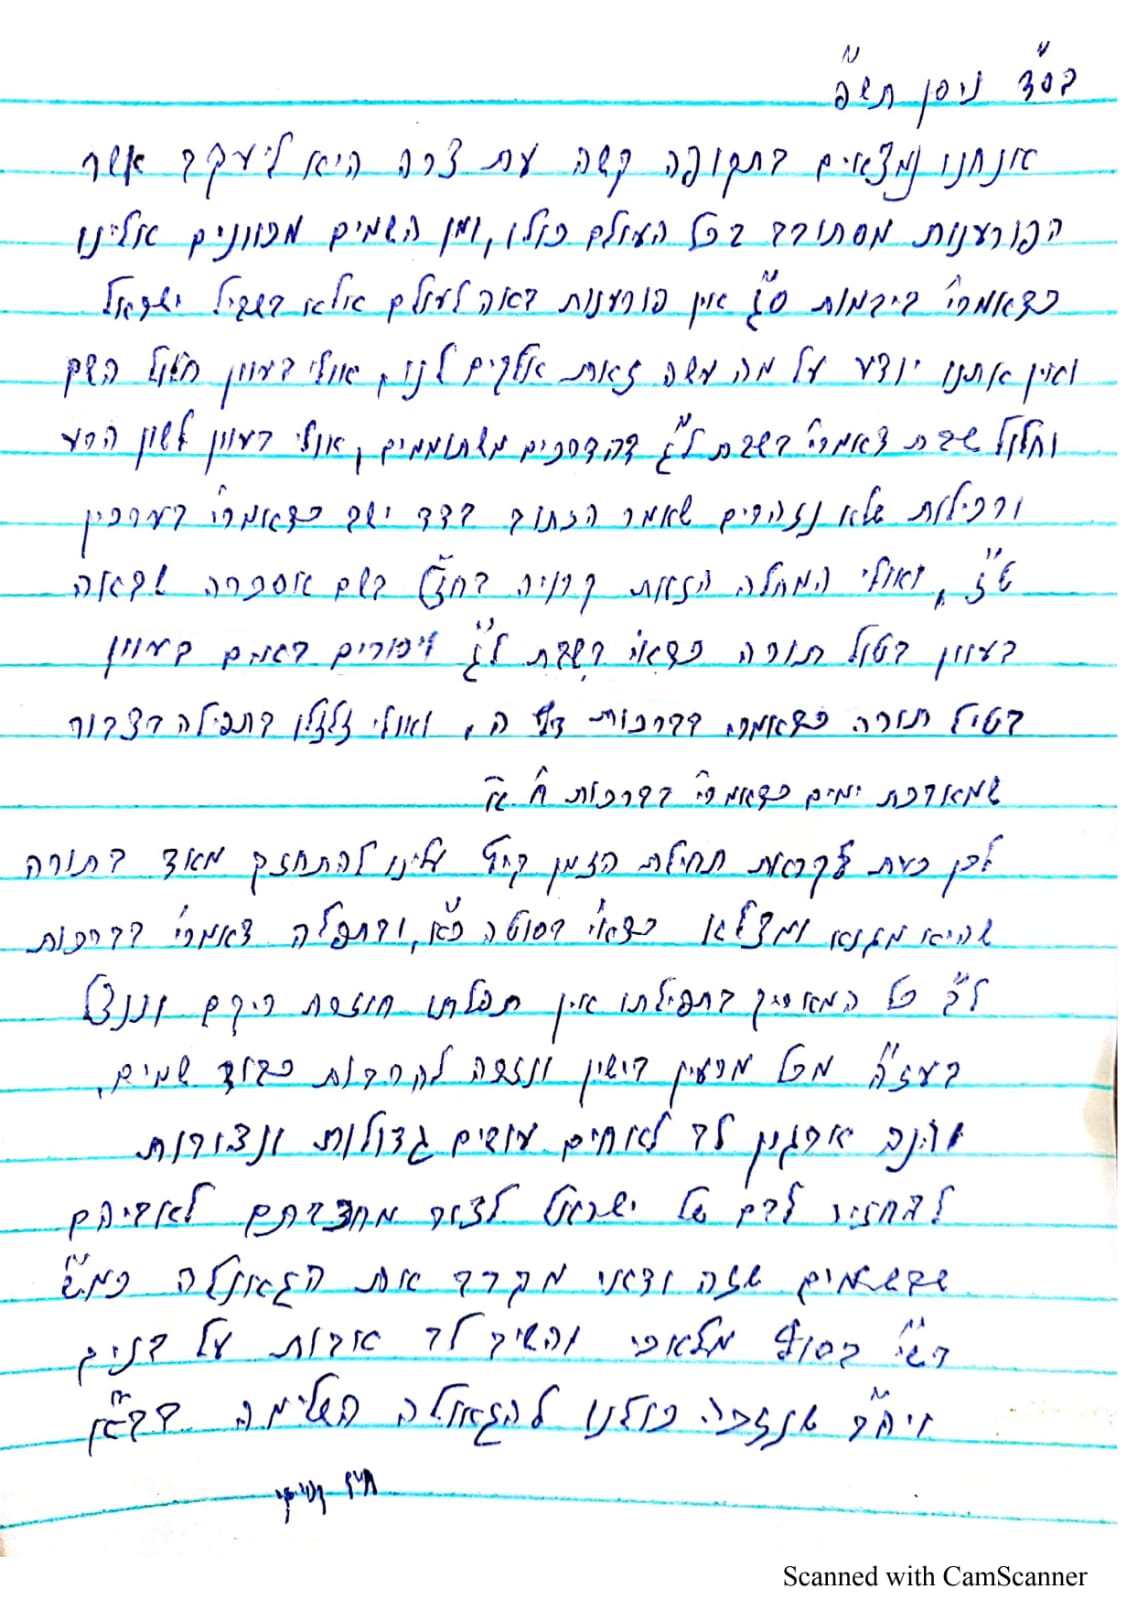 בס"ד ניסן תש"פ
אנחנו נמצאים בתקופה קשה עת צרה היא ליעקב אשר
הפורענות מסתובב בכל העולם כולו, ומן השמים מכוונים אלינו
כדאמרי' ביבמות ס"ג אין פורענות באה לעולם אלא בשביל ישראל
ואין אתנו יודע על מה עשה זאת אלקים לנו, אולי בעוון חלול השם
וחלול שבת דאמרי' בשבת ל"ג דהדרכים משתוממים, אולי בעוון לשון הרע
ורכילות שלא נזהרים שאמר הכתוב בדד ישב כדאמרי' בערכין
ט"ז, ואולי המחלה הזאת קרויה בחז"ל בשם אסכרה שבאה
בעוון בטול תורה כדאי' בשבת ל"ג ויסורים באים בעוון
בטול תורה כדאמרי' בברכות דף ה', ואולי זלזלו בתפילה בצבור
שמאריכת ימים כדאמרי' בברכות ח' א'
לכן כעת לקראת תחילת הזמן קיץ עלינו להתחזק מאוד בתורה
שהיא מגנא ומצלא כדאי' בסוטה כ"א, ובתפלה דאמרי' בברכות
ל"ב כל המאריך בתפילתו אין תפלתו חוזרת ריקם וננצל
בעז"ה מכל מרעין בישין ונזכה להרבות כבוד שמים,
והנה ארגון לב לאחים עושים גדולות ונצורות
להחזיר לבם של ישראל לצור מחצבתם לאביהם
שבשמים שזה ודאי מקרב את הגאולה כמ"ש
רש"י בסוף מלאכי והשיב לב אבות על בנים
ויה"ר שנזכה כולנו להגאולה השלימה בב"א
חיים קניבסקי
Scanned with CamScanner